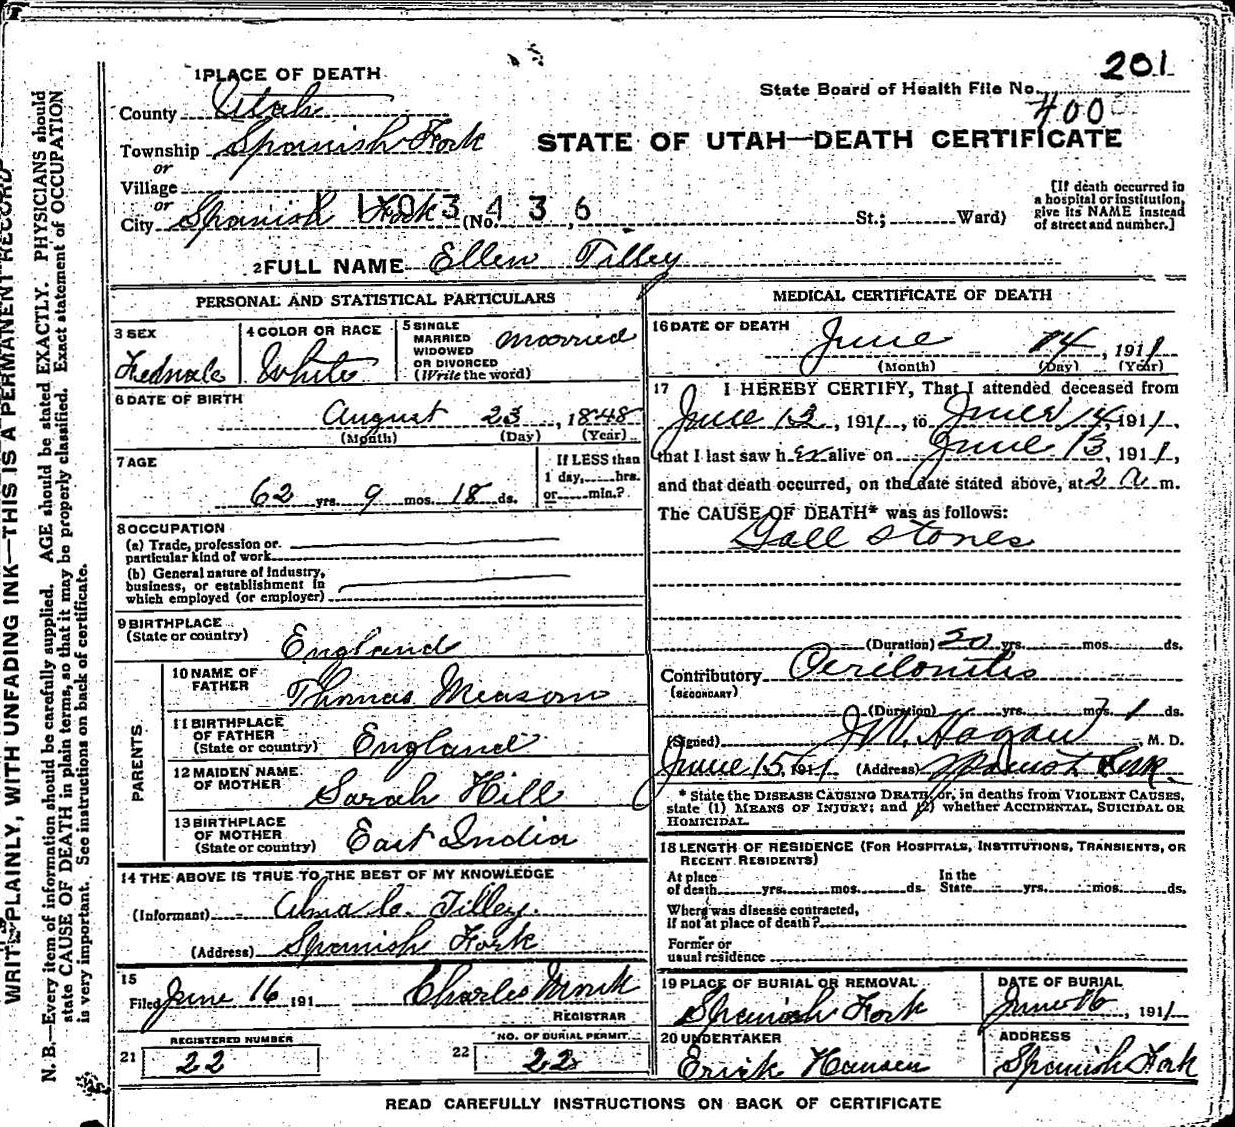 201
State Board of Health File No. 400
1 PLACE OF DEATH
County Utah
Township Spanish Fork
or
Village
or
City Spanish Fork (No. St.; Ward)
1103436
STATE OF UTAH—DEATH CERTIFICATE
[If death occurred in
a hospital or institution,
give its NAME instead
of street and number.]
2 FULL NAME Ellen Tilley
PERSONAL AND STATISTICAL PARTICULARS
3 SEX
Female
4 COLOR OR RACE
White
5 SINGLE
MARRIED
WIDOWED
OR DIVORCED
(Write the word)
Married
6 DATE OF BIRTH
August 23, 1848
(Month) (Day) (Year)
7 AGE
62 yrs. 9 mos. 18 ds.
If LESS than
1 day, hrs.
or min.?
8 OCCUPATION
(a) Trade, profession or
particular kind of work
(b) General nature of industry,
business, or establishment in
which employed (or employer)
9 BIRTHPLACE
(State or country)
England
PARENTS
10 NAME OF
FATHER
Thomas Meason
11 BIRTHPLACE
OF FATHER
(State or country)
England
12 MAIDEN NAME
OF MOTHER
Sarah Hill
13 BIRTHPLACE
OF MOTHER
(State or country)
East India
14 THE ABOVE IS TRUE TO THE BEST OF MY KNOWLEDGE
(Informant) Alma C. Tilley.
(Address) Spanish Fork
15
Filed June 16 191
Charles Monk
REGISTRAR
REGISTERED NUMBER
21 22
NO. OF BURIAL PERMIT
22 22
MEDICAL CERTIFICATE OF DEATH
16 DATE OF DEATH
June 14, 1911
(Month) (Day) (Year)
17 I HEREBY CERTIFY, That I attended deceased from
June 13, 1911, to June 14 1911,
that I last saw her alive on June 13, 1911,
and that death occurred, on the date stated above, at 2 a m.
The CAUSE OF DEATH* was as follows:
Gall stones
(Duration) 20 yrs. mos. ds.
Contributory Peritonitis
(SECONDARY)
(Duration) yrs. mos. 1 ds.
(Signed) J.W. Hagan, M. D.
June 15, 1911 (Address) Spanish Fork.
* State the DISEASE CAUSING DEATH, or, in deaths from VIOLENT CAUSES,
state (1) MEANS OF INJURY; and (2) whether ACCIDENTAL, SUICIDAL OR
HOMICIDAL.
18 LENGTH OF RESIDENCE (FOR HOSPITALS, INSTITUTIONS, TRANSIENTS, OR
RECENT RESIDENTS)
At place
of death yrs. mos. ds.
In the
State yrs. mos. ds.
Where was disease contracted,
if not at place of death?
Former or
usual residence
19 PLACE OF BURIAL OR REMOVAL
Spanish Fork
DATE OF BURIAL
June 16, 1911
20 UNDERTAKER
Erick Hansen
ADDRESS
Spanish Fork
READ CAREFULLY INSTRUCTIONS ON BACK OF CERTIFICATE
WRITE PLAINLY, WITH UNFADING INK—THIS IS A PERMANENT RECORD
N. B.—Every item of information should be carefully supplied. AGE should be stated EXACTLY. PHYSICIANS should
state CAUSE OF DEATH in plain terms, so that it may be properly classified. Exact statement of OCCUPATION
is very important. See instructions on back of certificate.